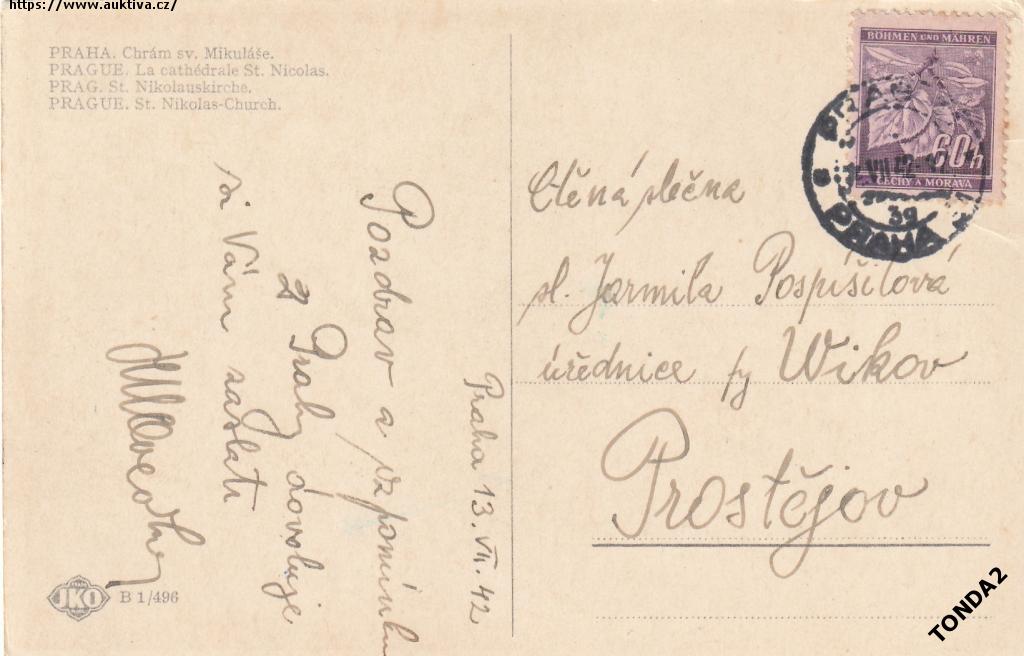 https://www.auktiva.cz/
PRAHA. Chrám sv. Mikuláše.
PRAGUE. La cathédrale St. Nicolas.
PRAG. St. Nikolauskirche.
PRAGUE. St. Nikolas-Church.
BÖHMEN UND MÄHREN
60h
ČECHY A MORAVA
PRAG
VII 42
39
PRAHA
Praha 13. VII. 42
Pozdrav a vzpomínku
z Prahy dovoluje
si Vám zaslati
Ctěná slečna
sl. Jarmila Pospíšilová
úřednice fy Wikov
Prostějov
JKO
B 1/496
TONDA2